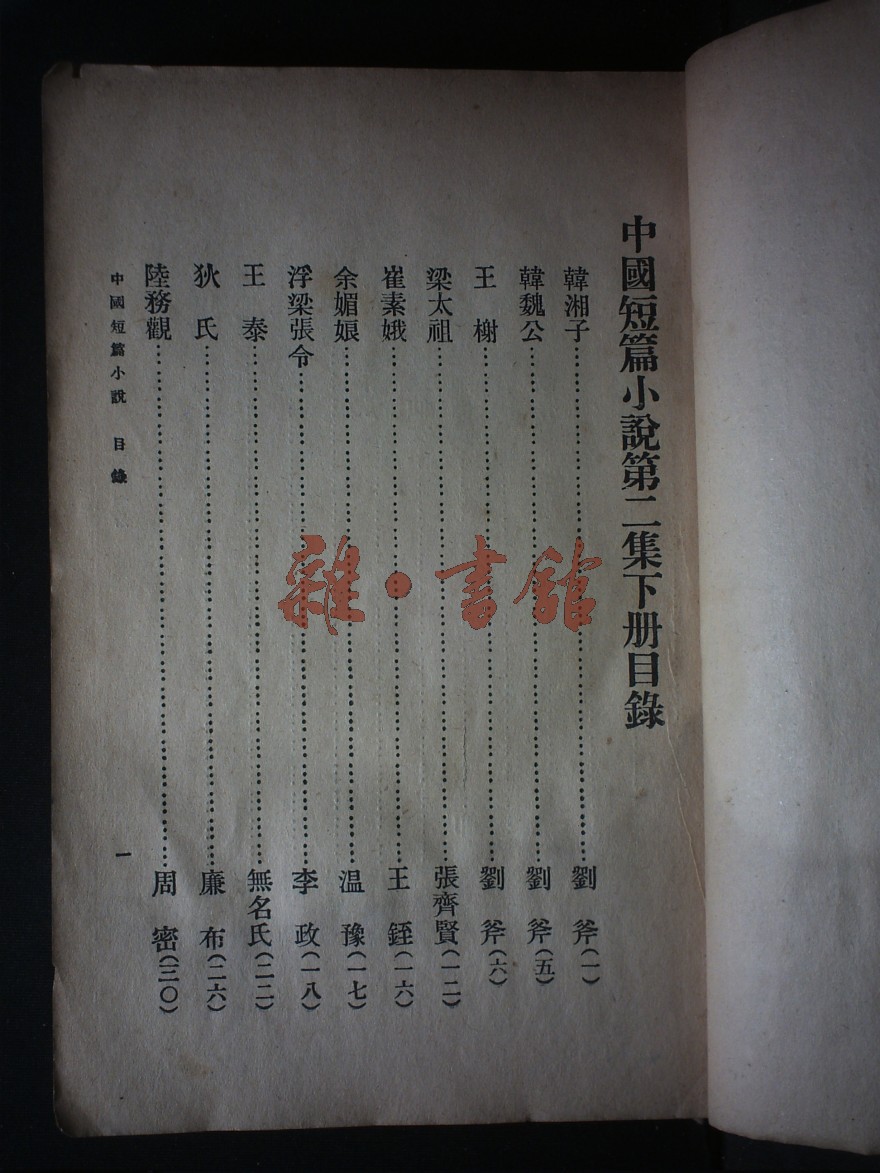 中國短篇小說第二集下册目錄
韓湘子……劉斧(一)
韓魏公……劉斧(五)
王榭……劉斧(六)
梁太祖……張齊賢(一二)
崔素娥……王銍(一六)
余媚娘……温豫(一七)
浮梁張令……李政(一八)
王泰……無名氏(二二)
狄氏……廉布(二六)
陸務觀……周密(三〇)
中國短篇小說 目錄
一
雜·書館